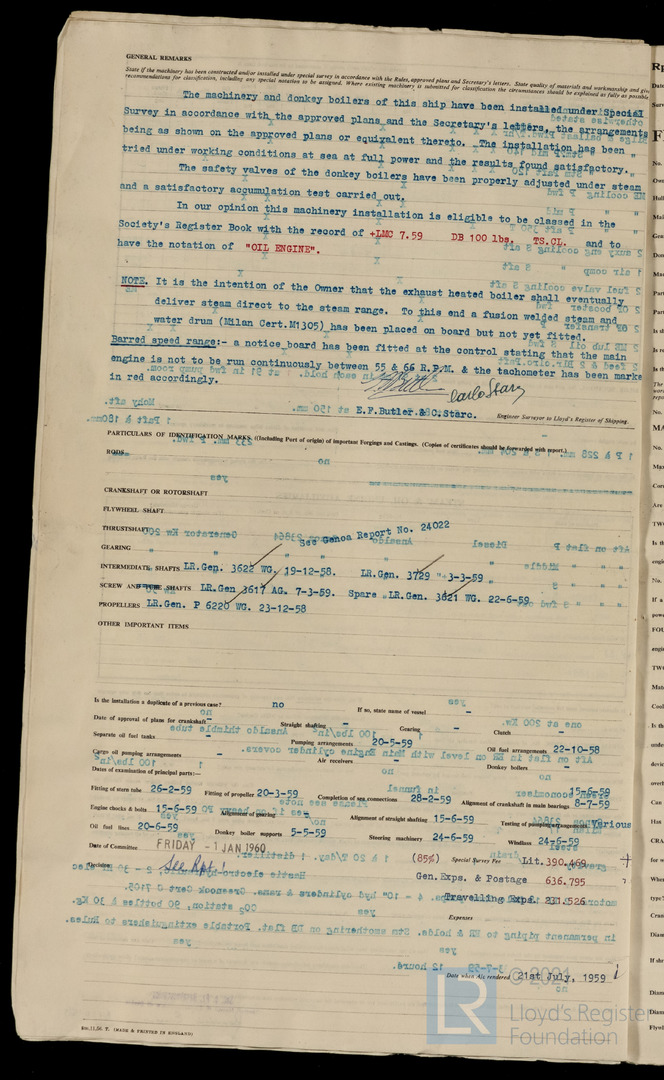 GENERAL REMARKS
State if the machinery has been constructed and/or installed under special survey in accordance with the Rules, approved plans and Secretary's letters. State quality of materials and workmanship and give
recommendations for classification, including any special notation to be assigned. Where existing machinery is submitted for classification the circumstances should be explained as fully as possible
The machinery and donkey boilers of this ship have been installed under Special
Survey in accordance with the approved plans and the Secretary's letters, the arrangements
being as shown on the approved plans or equivalent thereto. The installation has been
tried under working conditions at sea at full power and the results found satisfactory.
The safety valves of the donkey boilers have been properly adjusted under steam
and a satisfactory accumulation test carried out.
In our opinion this machinery installation is eligible to be classed in the
Society's Register Book with the record of +LMC 7.59 DB 100 lbs. TS.CL. and to
have the notation of "OIL ENGINE".
NOTE. It is the intention of the Owner that the exhaust heated boiler shall eventually
deliver steam direct to the steam range. To this end a fusion welded steam and
water drum (Milan Cert.M1305) has been placed on board but not yet fitted.
Barred speed range:- a notice board has been fitted at the control stating that the main
engine is not to be run continuously between 55 & 66 R.P.M. & the tachometer has been marke
in red accordingly.
Carlo Starc
E.F.Butler & C.Starc.
Engineer Surveyor to Lloyd's Register of Shipping.
PARTICULARS OF IDENTIFICATION MARKS (Including Port of origin) of important Forgings and Castings. (Copies of certificates should be forwarded with report.)
RODS
CRANKSHAFT OR ROTORSHAFT
FLYWHEEL SHAFT
THRUSTSHAFT See Genoa Report No. 24022
GEARING
INTERMEDIATE SHAFTS LR.Gen. 3622 WG. 19-12-58. LR.Gen. 3729 " 3-3-59
SCREW AND TUBE SHAFTS LR.Gen 3617 AG. 7-3-59. Spare LR.Gen. 3621 WG. 22-6-59
PROPELLERS LR.Gen. P 6220 WG. 23-12-58
OTHER IMPORTANT ITEMS
Is the installation a duplicate of a previous case? no If so, state name of vessel -
Date of approval of plans for crankshaft - Straight shafting - Gearing - Clutch -
Separate oil fuel tanks - Pumping arrangements 20-5-59 Oil fuel arrangements 22-10-58
Cargo oil pumping arrangements - Air receivers - Donkey boilers -
Dates of examination of principal parts:—
Fitting of stern tube 26-2-59 Fitting of propeller 20-3-59 Completion of sea connections 28-2-59 Alignment of crankshaft in main bearings 15-6-59 8-7-59
Engine chocks & bolts 15-6-59 Alignment of gearing - Alignment of straight shafting 15-6-59 Testing of pumping arrangements Various
Oil fuel lines 20-6-59 Donkey boiler supports 5-5-59 Steering machinery 24-6-59 Windlass 24-6-59
Date of Committee FRIDAY - 1 JAN 1960 (85%) Special Survey Fee Lit. 390.469
Decision See Rpt 1 Gen. Exps. & Postage 636.795
Travelling Exps. 231.526
Expenses
Date when A/c rendered 21st July, 1959
© 2021
LR
Lloyd's Register
Foundation
(MADE & PRINTED IN ENGLAND)